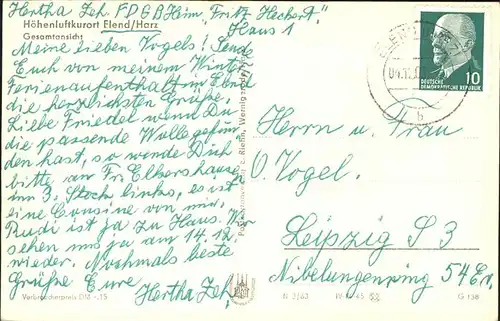 Hertha Zeh, FDGB Heim, „Fritz Heckert",
Haus 1
Höhenluftkurort Elend/Harz
Gesamtansicht
Meine lieben Vogels! Sende
Euch von meinem Winter
Ferienaufenthalt in Elend
die herzlichsten Grüße.
Liebe Friedel wenn Du
die passende Wolle gefun
den hast, so wende Dich
bitte an Fr. Elkershausen
im 3. Stock links, es ist
eine Cousine von mir.
Rudi ist ja zu Haus. Wir
sehen uns ja am 14.12.
wieder. Nochmals beste
Grüße Eure
Hertha Zeh.
Verbraucherpreis DM -,15
Wernigerode
ELEND
b
10
DEUTSCHE
DEMOKRATISCHE REPUBLIK
Herrn u. Frau
O. Vogel.
Leipzig S 3
Nibelungenring 54 Er.
G 138